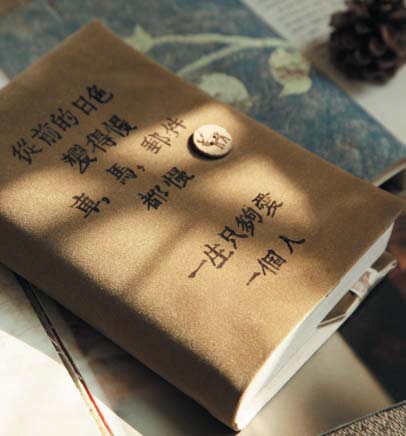 從前的日色
變得慢
車，馬，郵件
都慢
一生只夠愛
一個人